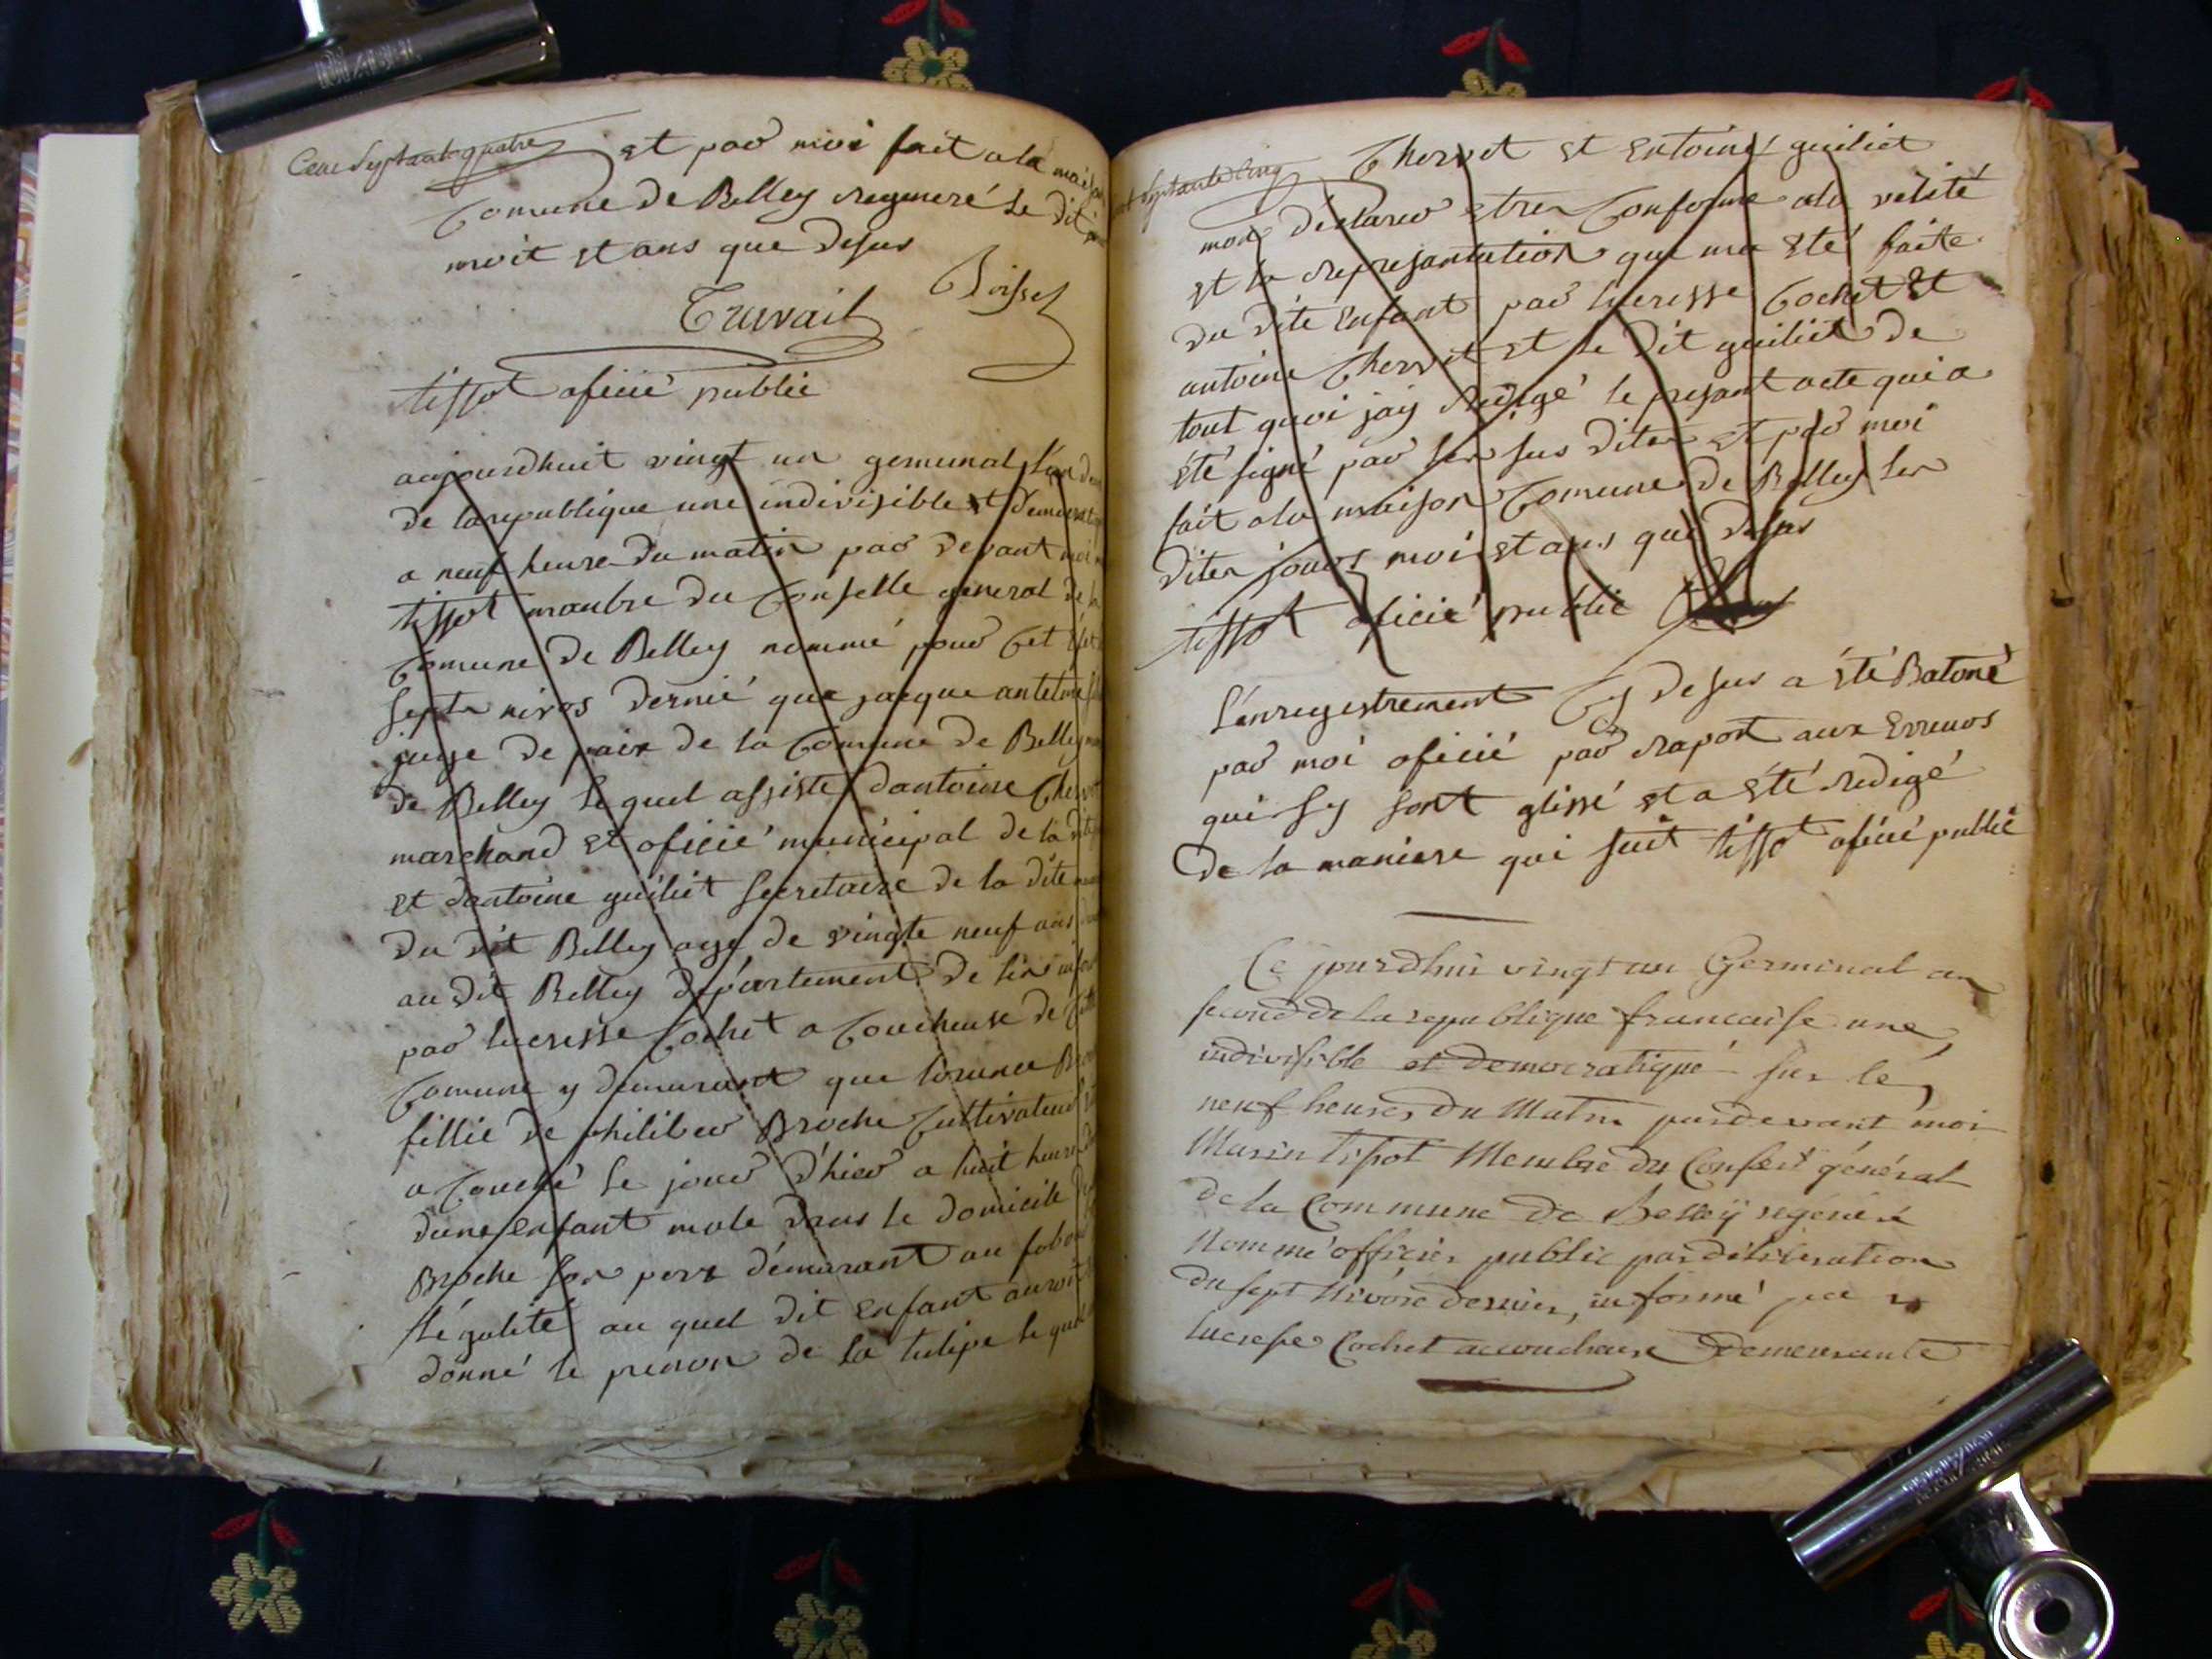 Cent Septante quatre
et par moi fait a la maison
Comune de Belley regeneré le dit
moit et ans que desus
Truvail Boisset
tissot oficié public
aujourdhuit vingt un germinal l'an
de la republique une indivisible et democratique
a neuf heure du matin par devant moi
tissot manbre du Conselle general de la
Comune de Belley nommé pour Cet
septe nivos dernié que jacque antelme
juge de paix de la Comune de Belley
de Belley le quel assiste dantoine Chervet
marchand et oficié municipal de la dite
et dantoine guiliet secretaire de la dite
du dit Belley age de vingte neuf ans
au dit Belley département de lin
par lucresse Cochet a Coucheuse de
Comune y demurant que
fillie de philiber Broche Cultivateur
a Couché le jour d'hier a huit heure
dune enfant male dans le domicile
Broche son pere démurant au fobour
légalité au quel dit enfant auroit
donné le prenon de la tulipe le quel
Cent Septante Cinq
Chervet et entoine guiliet
mon déclarer etre Conforme ala vérité
et la represantation qui ma été faite
du dite enfant par lucresse Cochet et
antoine Chervet et le dit guiliet de
tout quoi jay redigé le presant acte qui a
été signé par les sus dites et par moi
fait ala maison Comune de Belley les
dites jours moi et ans que desus
tissot oficié public
l'enregestrement Cy desus a été Batoné
par moi oficié par raport aux Erreurs
qui sy sont glissé et a été redigé
de la maniere qui suit tissot oficié public
Ce jourdhui vingt un Germinal an
second de la republique francaise une
indivisible et democratique sur les
neuf heures du Matin pardevant moi
Marin tissot Membre du Conseil général
de la Commune de Belley régénéré
Nommé officier public par délibération
du sept Nivôse dernier, informé par
lucresse Cochet accoucheuse Demeurante